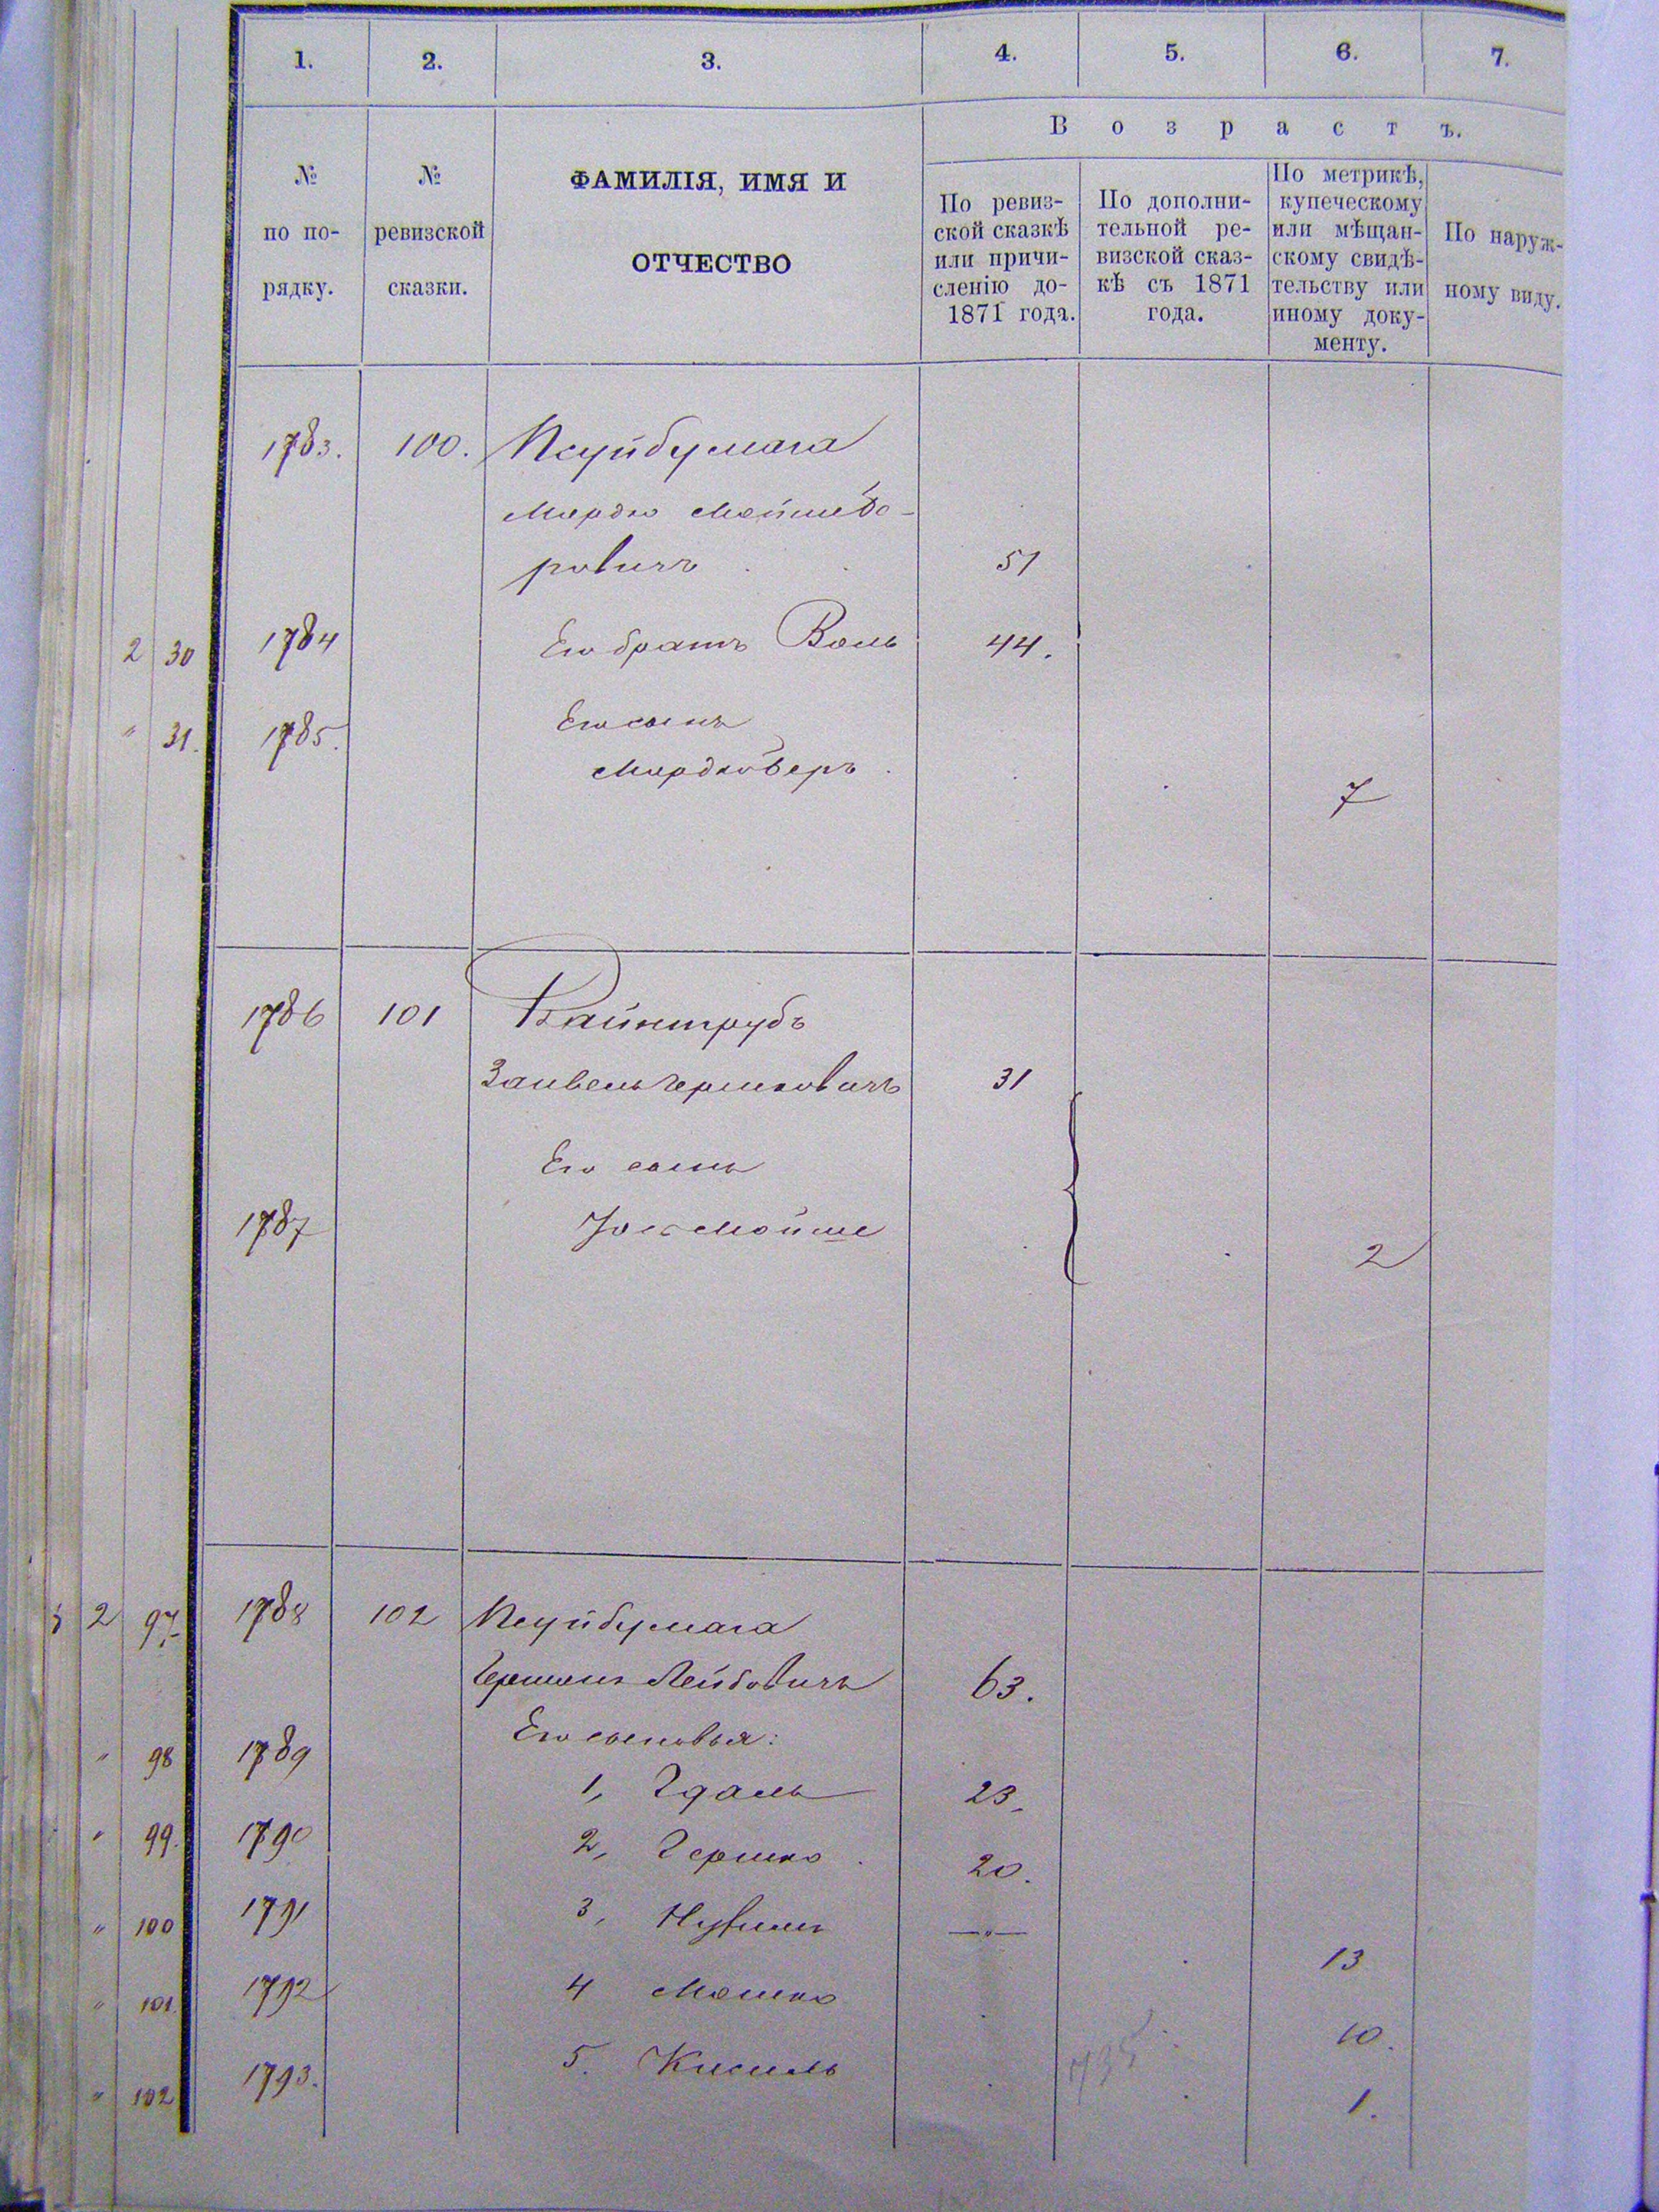 1. 2. 3. 4. 5. 6. 7.
В о з р а с т ъ.
№ по по- рядку.
№ ревизской сказки.
ФАМИЛІЯ, ИМЯ И
ОТЧЕСТВО
По ревиз-
ской сказкѣ
или причи-
сленію до-
1871 года.
По дополни-
тельной ре-
визской сказ-
кѣ съ 1871
года.
По метрикѣ,
купеческому
или мѣщан-
скому свидѣ-
тельству или
иному доку-
менту.
По наруж-
ному виду.
1783. 100. Псуйбумага
Мордко Мойше Бо-
ровичъ 51
2 30 1784 Его братъ Воль 44.
" 31. 1785. Его сынъ
Мордко Беръ 7
1786 101 Вайнтрубъ
Занвель Гершковичъ 31
Его сынъ
1787 Іось Мойше 2
2 97. 1788 102 Псуйбумага
Гершонъ Лейбовичъ 63.
Его сыновья:
" 98 1789 1, Гдаль 23.
" 99. 1790 2, Гершко 20.
" 100 1791 3, —"— 13
" 101. 1792 4 Мошко 10.
" 102 1793. 5. Кисиль 1.